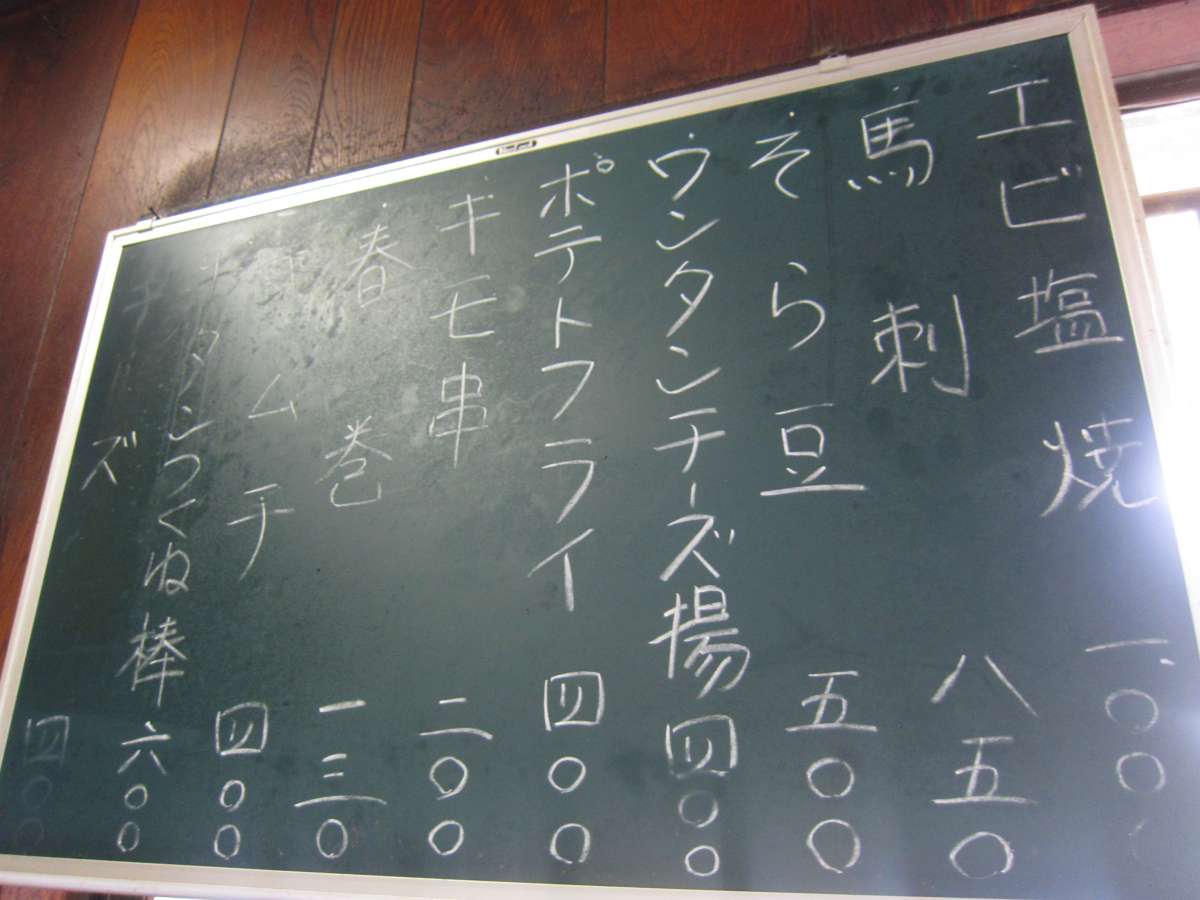 エビ塩焼 一、〇〇〇
馬刺 八五〇
そら豆 五〇〇
ウンタンチーズ揚 四〇〇
ポテトフライ 四〇〇
ギモ串 二〇〇
春巻 一三〇
キムチ 四〇〇
ナタンつくね棒 六〇〇
チーズ 四〇〇